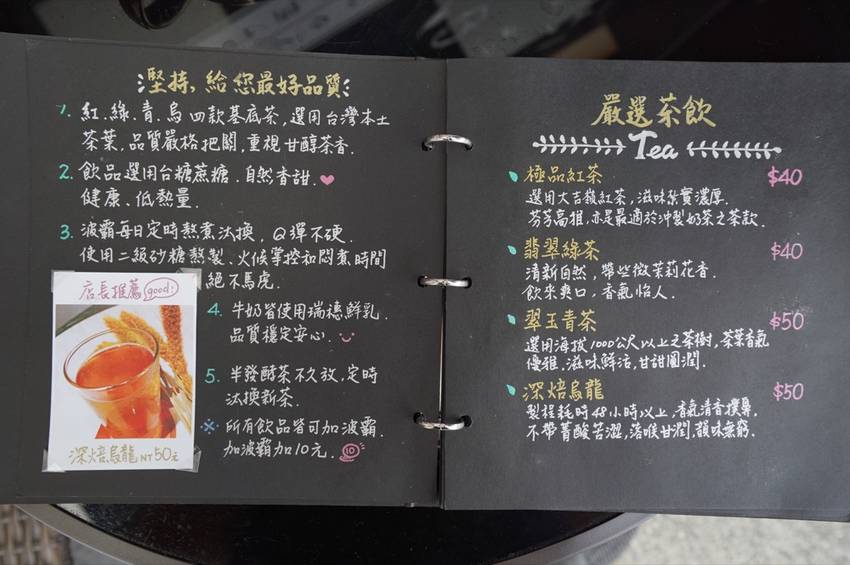 堅持,給您最好品質
1. 紅.綠.青.烏四款基底茶,選用台灣本土
茶葉,品質嚴格把關,重視甘醇茶香.
2. 飲品選用台糖蔗糖.自然香甜.
健康、低熱量.
3. 波霸每日定時熬煮汰換,Q彈不硬.
使用二級砂糖熬製、火候掌控和悶煮時間
絕不馬虎.
店長推薦 good!
深焙烏龍 NT 50元
4. 牛奶皆使用瑞穗鮮乳.
品質穩定安心.
5. 半發酵茶不久放,定時
汰換新茶.
※ 所有飲品皆可加波霸.
加波霸加10元. 10
嚴選茶飲
Tea
極品紅茶 $40
選用大吉嶺紅茶,滋味紮實濃厚.
芬芳高雅,亦是最適於沖製奶茶之茶款.
翡翠綠茶 $40
清新自然,帶些微茉莉花香.
飲來爽口,香氣怡人.
翠玉青茶 $50
選用海拔1000公尺以上之茶樹,茶葉香氣
優雅.滋味鮮活.甘甜圓潤.
深焙烏龍 $50
製程耗時48小時以上,香氣清香撲鼻.
不帶菁酸苦澀,落喉甘潤.韻味無窮.